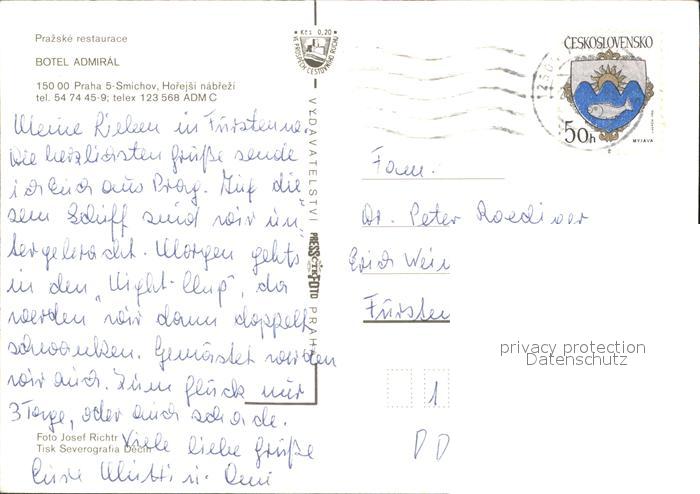 Pražské restaurace
BOTEL ADMIRÁL
150 00 Praha 5-Smíchov, Hořejší nábřeží
tel. 54 74 45-9; telex 123 568 ADM C
Meine Lieben in
Die herzlichsten Grüße sende
ich Euch aus Prag. Auf die-
sem Schiff sind wir un-
tergebracht. Morgen geht's
in den „Night-Clup", da
werden wir dann doppelt
schwanken. Gemästet werden
wir auch. Zum Glück nur
3 Tage, oder auch schade.
Viele liebe Grüße
Eure Mutti u. Omi
Foto Josef Richtr
Tisk Severografia Děčín
Kčs 0,20
VE PROSPĚCH CESTOVNÍHO RUCHU
VYDAVATELSTVÍ PRESSFOTO PRAHA
ČESKOSLOVENSKO
50h
MYJAVA
Fam.
Dr. Peter
Erich Wein
Fürsten
privacy protection
Datenschutz
1
DD